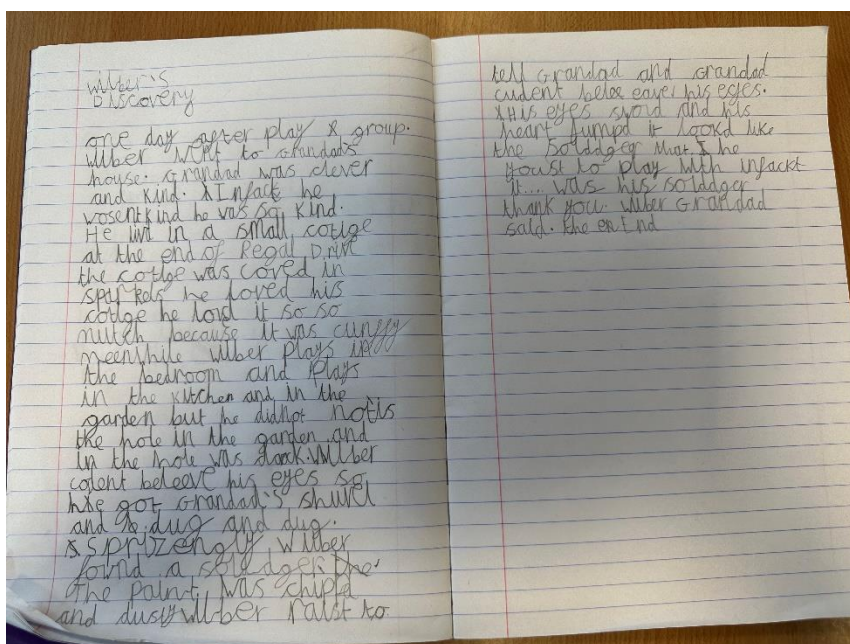 wilber's
Discovery
one day after play & group.
wilber went to Grandad's
house. Grandad was clever
and kind. Infack he
wosent kind he was so kind.
He livd in a small cotige
at the end of Regal Drive
the cotige was coved in
sparkels he loved his
cotige he lovd it so so
mutch because it was cunffy
meenwhile wilber plays in
the bedroom and plays
in the kitchen and in the
garden but he didnot notis
the hole in the garden and
in the hole was dark. Wilber
codent beleeve his eyes so
he got Grandad's shuvel
and dug and dug.
sprizengly wilber
found a soledger the
the paint was chipd
and dusty wilber raist to
tell Grandad and Grandad
cudent belee his eyes.
His eyes and his
heart jumpd it lookd like
the soldadger that he
youst to play with infackt
it... was his soldadger
thank you. wilber Grandad
said. the end